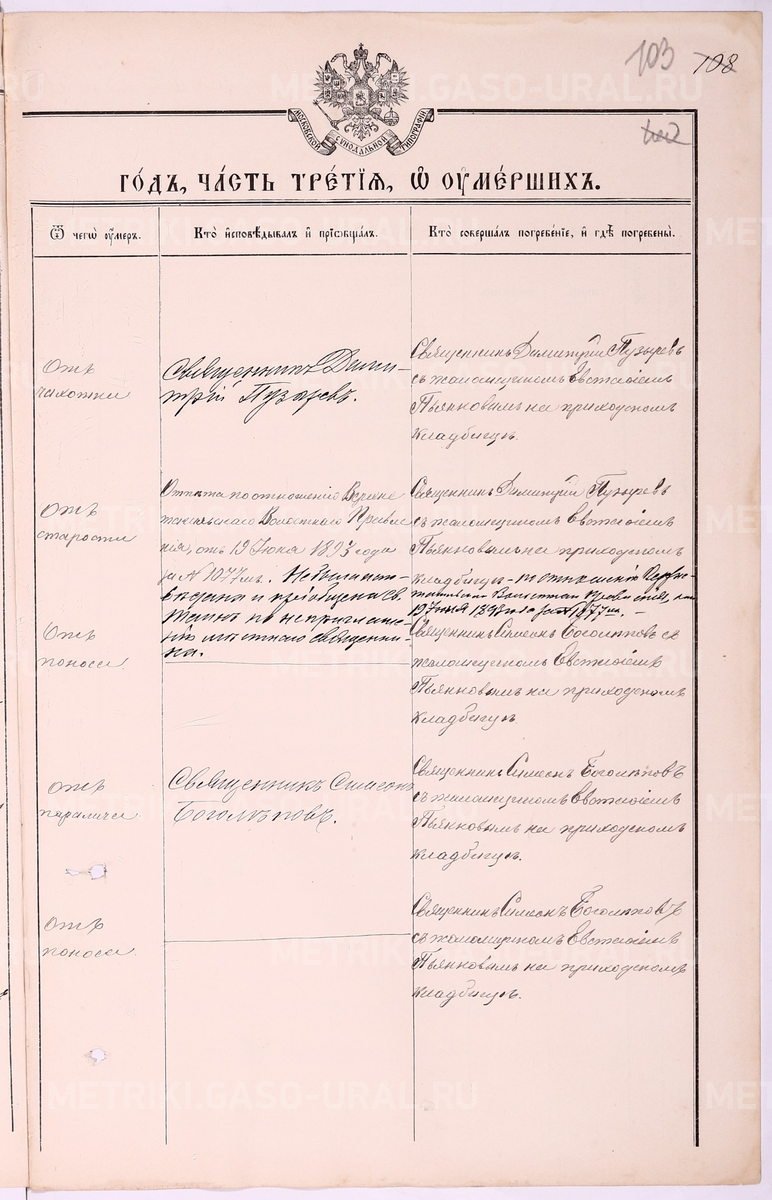 103 108
МОСКОВСКОЙ СѴНОДАЛЬНОЙ ТИПОГРАФІИ
ГО́ДЪ, ЧА́СТЬ ТРЕ́ТІѦ, Ѡ҆ ОУ҆МЕ́РШИХЪ.
Ѿ чегѡ̀ оу҆́меръ.
Кто̀ и҆сповѣ́дывалъ и҆ прїѡбща́лъ.
Кто̀ соверша́лъ погребе́нїе, и҆ гдѣ̀ погребены̀.
Отъ
чахотки
Священникъ Дими-
трій Пузыревъ.
Священникъ Димитрій Пузыревъ
съ псаломщикомъ Евстаѳіемъ
Пьянковымъ на приходскомъ
кладбищѣ.
Отъ
старости
Отпѣта по отношенію Верхне
Волостного Правле
нія, отъ 19 Іюня 1893 года
за № 1077мъ. Не была испо-
вѣдана и пріобщена Св.
Таинъ по неприглаше-
нію мѣстнаго священни-
ка.
Священникъ Димитрій Пузыревъ
съ псаломщикомъ Евстаѳіемъ
Пьянковымъ на приходскомъ
кладбищѣ – по отношенію
Волостного Правленія, отъ
19 Іюня 1893 года за № 1077мъ. –
Отъ
поноса
Священникъ Симеонъ Боголѣповъ съ
псаломщикомъ Евстаѳіемъ
Пьянковымъ на приходскомъ
кладбищѣ
отъ
паралича
Священникъ Симеонъ
Боголѣповъ.
Священникъ Симеонъ Боголѣповъ
съ псаломщикомъ Евстаѳіемъ
Пьянковымъ на приходскомъ
кладбищѣ.
Отъ
поноса
Священникъ Симеонъ Боголѣповъ
съ псаломщикомъ Евстаѳіемъ
Пьянковымъ на приходскомъ
кладбищѣ.
METRIKI.GASO-URAL.RU